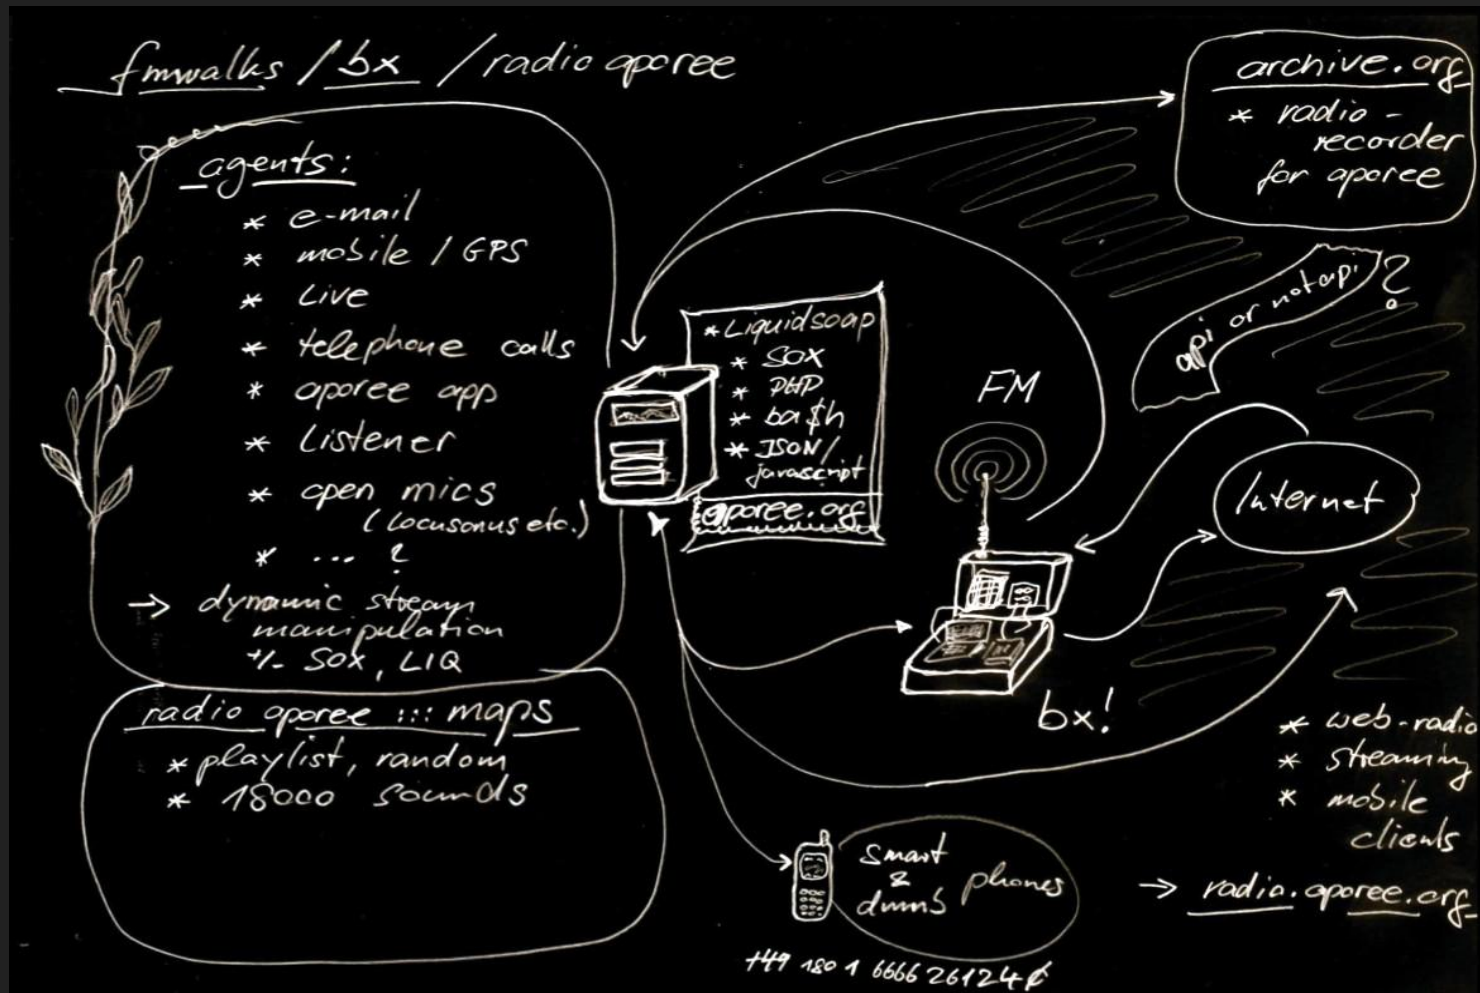 fmwalks / bx / radio aporee
agents:
* e-mail
* mobile / GPS
* Live
* telephone calls
* aporee app
* Listener
* open mics
(Locusonus etc.)
* ... ?
→ dynamic stream
manipulation
+/- SOX, LIQ
radio aporee ::: maps
* playlist, random
* 18000 sounds
* Liquidsoap
* SOX
* PHP
* ba$h
* JSON/
javascript
aporee.org
archive.org
* radio -
recorder
for aporee
api or not api ?
FM
Internet
bx!
* web-radio
* streaming
* mobile
clients
→ radio.aporee.org
smart
&
dumb phones
+49 180 1 6666 26124 ¢